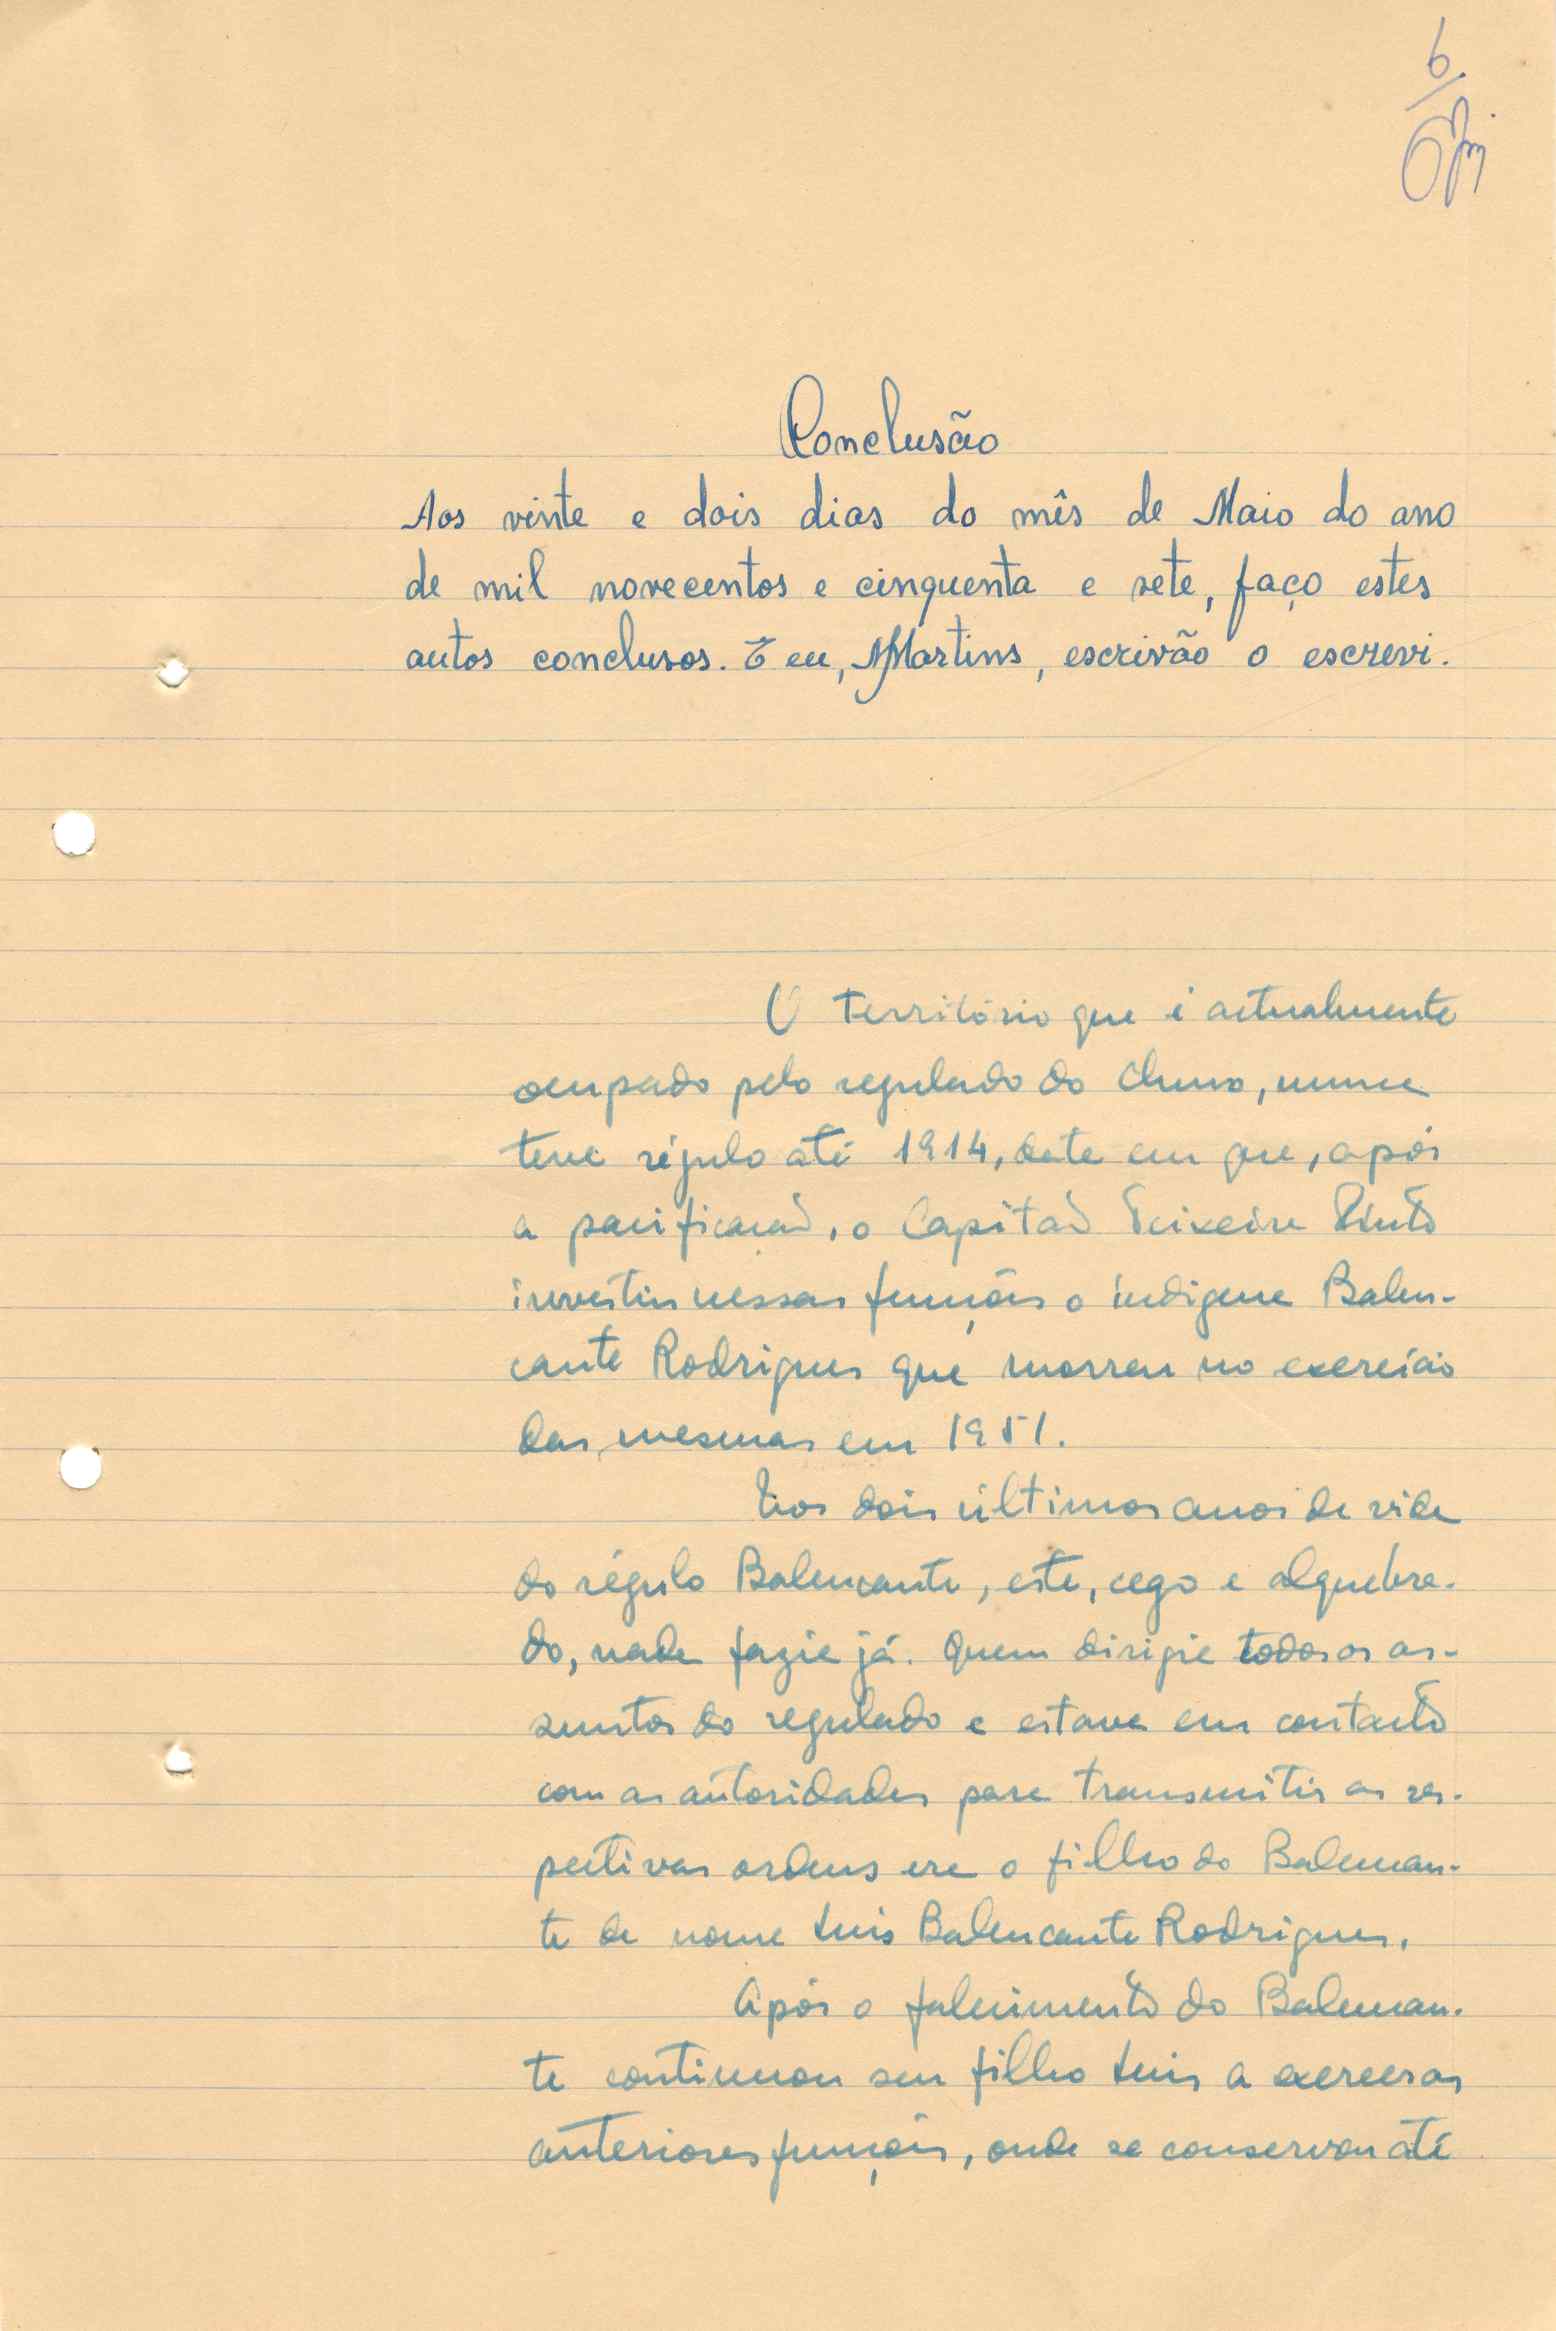 6
Conclusão
Aos vinte e dois dias do mês de Maio do ano
de mil novecentos e cinquenta e sete, faço estes
autos conclusos. E eu, Martins, escrivão o escrevi.
O território que é actualmente
ocupado pelo regulado do Churo, nunca
teve régulo até 1914, data em que, após
a pacificação, o Capitão Teixeira Pinto
investiu nessas funções o indigena Balen-
cante Rodrigues que morreu no exercício
das mesmas em 1951.
Nos dois últimos anos de vida
do régulo Balencante, este, cego e alquebra-
do, nada fazia já. Quem dirigia todos os as-
suntos do regulado e estava em contacto
com as autoridades para transmitir as res-
pectivas ordens era o filho do Balencan-
te de nome Luis Balencante Rodrigues.
Após o falecimento do Balencan-
te continuou seu filho Luis a exercer as
anteriores funções, onde se conservou até